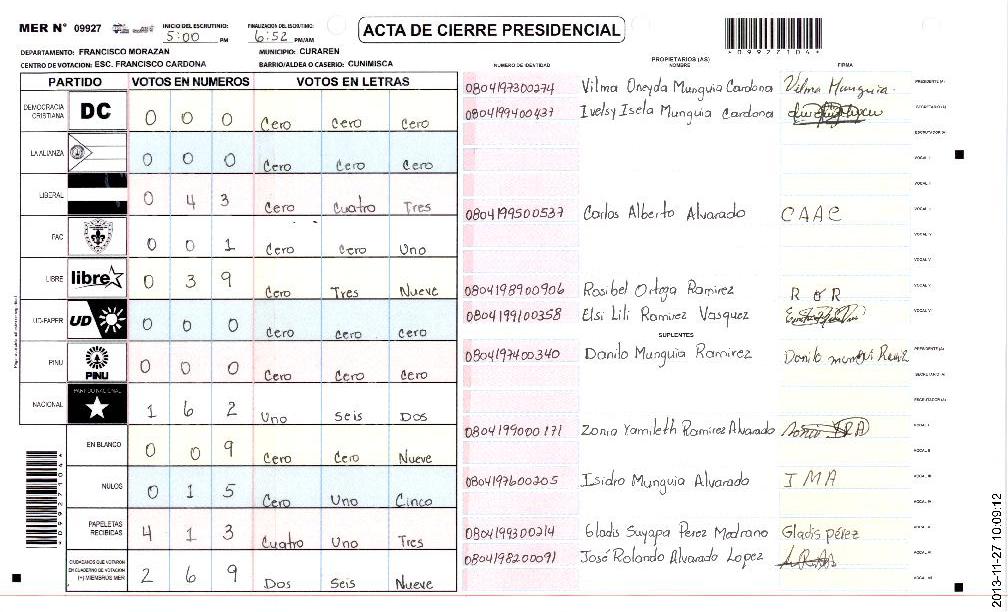 MER N° 09927
INICIO DEL ESCRUTINIO: 5:00 PM
FINALIZACION DEL ESCRUTINIO: 6:52 PM/AM
ACTA DE CIERRE PRESIDENCIAL
099271041
DEPARTAMENTO: FRANCISCO MORAZAN
MUNICIPIO: CURAREN
CENTRO DE VOTACION: ESC. FRANCISCO CARDONA
BARRIO/ALDEA O CASERIO: CUNIMISCA
PARTIDO VOTOS EN NUMEROS VOTOS EN LETRAS
DEMOCRACIA CRISTIANA DC 0 0 0 Cero Cero Cero
LA ALIANZA 0 0 0 Cero Cero Cero
LIBERAL 0 4 3 Cero Cuatro Tres
PAC 0 0 1 Cero Cero Uno
LIBRE libre 0 3 9 Cero Tres Nueve
UD-FAPER UD 0 0 0 Cero Cero Cero
PINU PINU 0 0 0 Cero Cero Cero
NACIONAL PARTIDO NACIONAL 1 6 2 Uno Seis Dos
EN BLANCO 0 0 9 Cero Cero Nueve
NULOS 0 1 5 Cero Uno Cinco
PAPELETAS RECIBIDAS 4 1 3 Cuatro Uno Tres
CIUDADANOS QUE VOTARON EN CUADERNO DE VOTACION (+) MIEMBROS MER 2 6 9 Dos Seis Nueve
099271041
PROPIETARIOS (AS)
NUMERO DE IDENTIDAD NOMBRE FIRMA
0804197300274 Vilma Oneyda Munguia Cardona Vilma Munguia. PRESIDENTE (A)
0804199400437 Ivelsy Isela Munguia Cardona SECRETARIO (A)
ESCRUTADOR (A)
VOCAL I
VOCAL II
0804199500537 Carlos Alberto Alvarado CAAC VOCAL III
VOCAL IV
0804198900906 Rosibel Ortega Ramirez R O R VOCAL V
0804199100358 Elsi Lili Ramirez Vasquez VOCAL VI
SUPLENTES
0804197400340 Danilo Munguia Ramirez Danilo PRESIDENTE (A)
SECRETARIO (A)
ESCRUTADOR (A)
0804199000171 Zonia Yamileth Ramirez Alvarado VOCAL I
VOCAL II
0804197600205 Isidro Munguia Alvarado IMA VOCAL III
VOCAL IV
0804199300214 Gladis Suyapa Perez Madrano Gladis pérez VOCAL V
0804198200091 José Rolando Alvarado Lopez VOCAL VI
VOCAL VII
2013-11-27 10:09:12